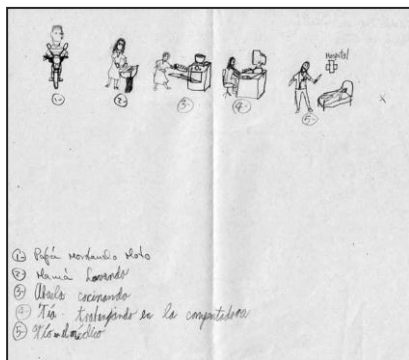 Hospital
1-
2-
3-
4-
5-
1- Papá Montando Moto
2- Mamá Lavando
3- Abuela cocinando
4- Tía trabajando en la computadora
5- Tío médico